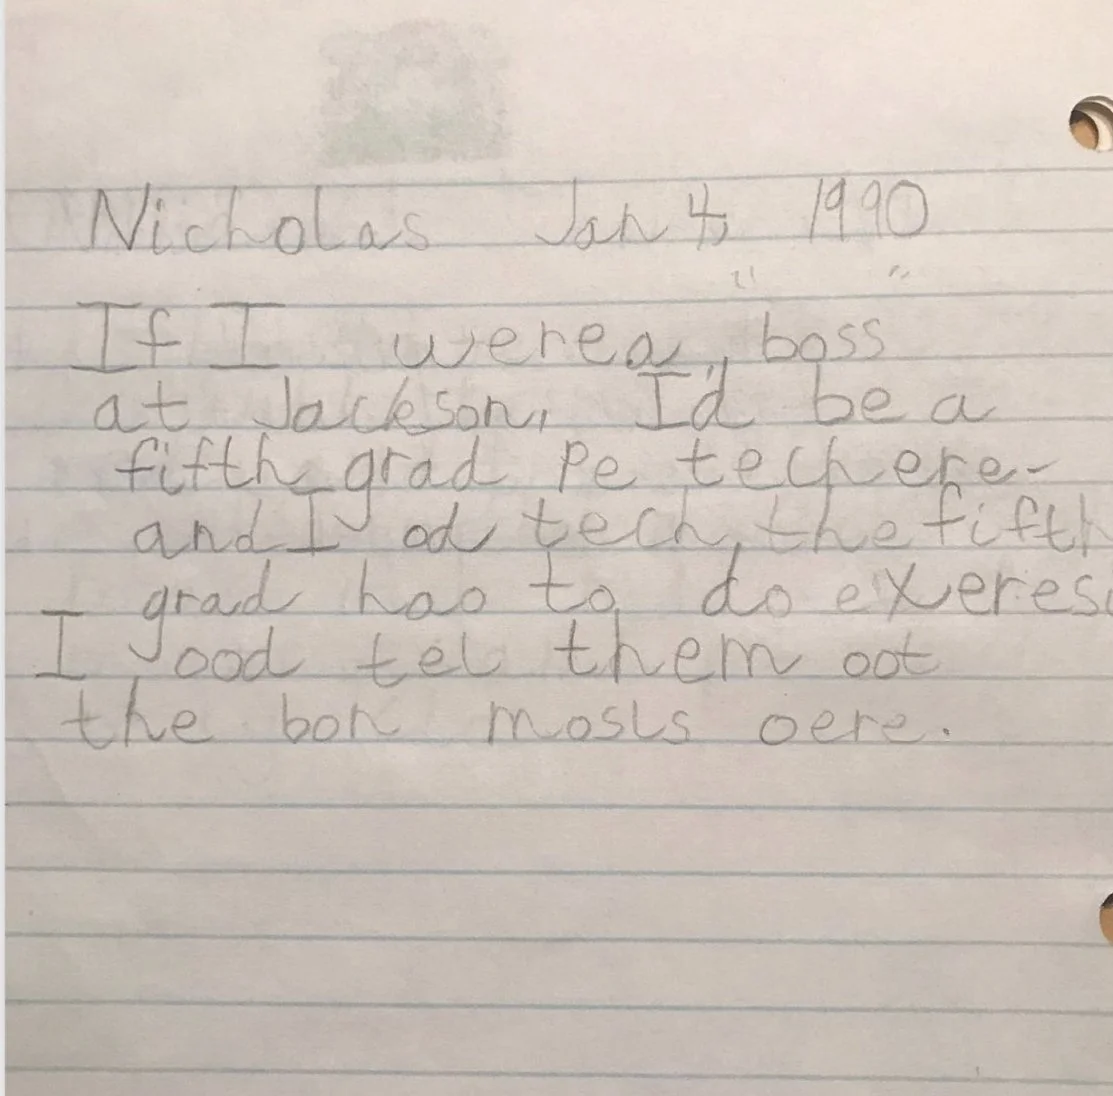 Nicholas Jan 4, 1990
If I were a boss
at Jackson, I'd be a
fifth grad Pe techere
and I od tech the fifth
grad hao to do exeres
I ood tel them oot
the bon mosls oere.